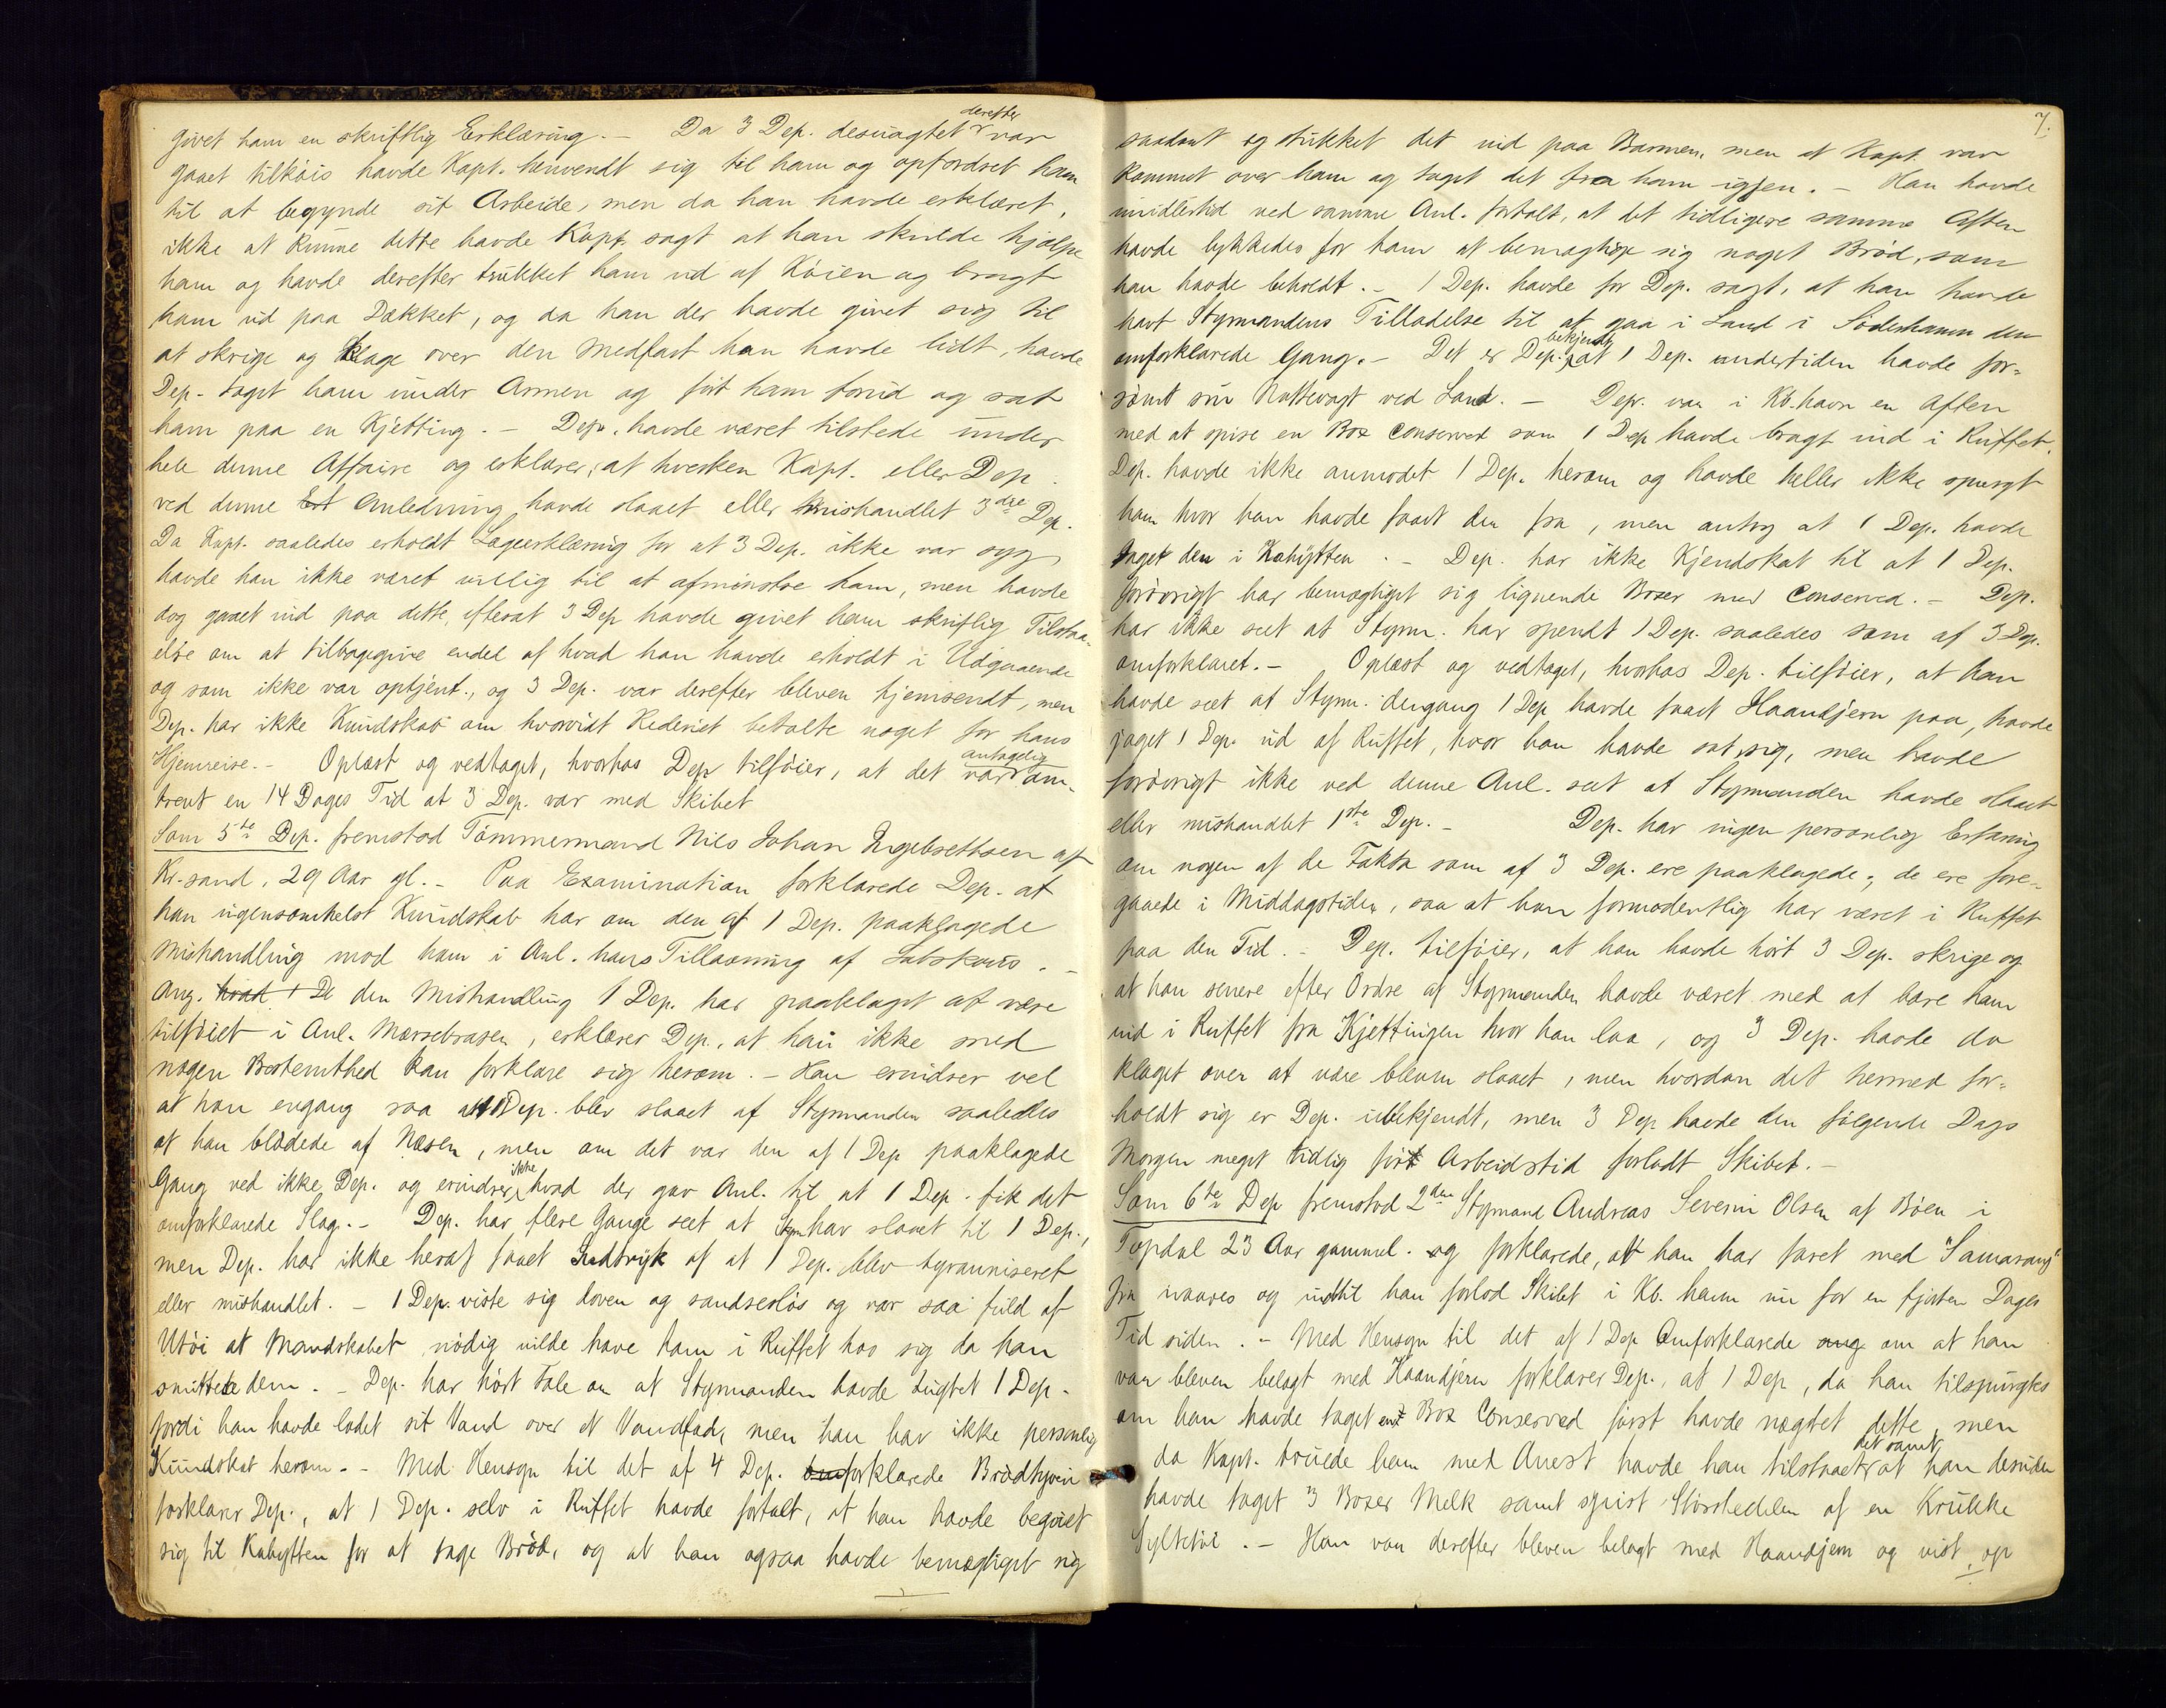 givet ham en skriftlig Erklæring. – Da 3 Dep. desuagtet derefter var
gaaet tilkøis havde Kapt. henvendt sig til ham og opfordret ham
til at begynde sit Arbeide, men da han havde erklæret,
ikke at kunne dette havde Kapt. sagt at han skulde hjælpe
ham og havde derefter trukket ham ud af Køien og bragt
ham ud paa Dækket, og da han der havde givet sig til
at skrige og klage over den Medfart han havde lidt, havde
Dep. taget ham under Armen og ført ham forud og sat
ham paa en Kjetting. – Dep. havde været tilstede under
hele denne Affaire og erklærer, at hverken Kapt. eller Dep.
ved denne Anledning havde slaaet eller mishandlet 3die Dep.
Da Kapt. saaledes erholdt Lægeerklæring for at 3 Dep. ikke var syg
havde han ikke været villig til at afmønstre ham, men havde
dog gaaet ind paa dette, efterat 3 Dep havde givet ham skriftlig Tilstaa-
else om at tilbagegive endel af hvad han havde erholdt i Udgaaende
og som ikke var optjent., og 3 Dep. var derefter bleven hjemsendt, men
Dep. har ikke Kundskab om hvorvidt Rederiet betalte noget for hans
Hjemreise. – Oplæst og vedtaget, hvorhos Dep tilføier, at det antagelig var om-
trent en 14 Dages Tid at 3 Dep. var med Skibet
Som 5te Dep. fremstod Tømmermand Nils Johan Ingebrethsen af
Kr.sand, 29 Aar gl. – Paa Examination forklarede Dep. at
han ingensomhelst Kundskab har om den af 1 Dep. paaklagede
Mishandling mod ham i Anl. hans Tillavning af Labskaus. –
Ang. hvad 1 De den Mishandling 1 Dep. har paaklaget at være
tilføiet i Anl. Mærsebrasen, erklærer Dep., at han ikke med
nogen Bestemthed kan forklare sig herom. – Han erindrer vel
at han engang saa at 1 Dep. blev slaaet af Styrmanden saaledes
at han blødede af Næsen, men om det var den af 1 Dep paaklagede
Gang ved ikke Dep. og erindrer ikke hvad der gav Anl. til at 1 Dep. fik det
omforklarede Slag. – Dep. har flere Gange seet at Styrm har slaaet til 1 Dep.,
men Dep. har ikke heraf faaet Indtryk af at 1 Dep. blev tyranniseret
eller mishandlet. – 1 Dep. viste sig doven og sandseløs og var saa fuld af
Utøi at Mandskabet nødig vilde have ham i Ruffet hos sig da han
smittede dem. – Dep. har hørt Tale om at Styrmanden havde tugtet 1 Dep.
fordi han havde ladet sit Vand over et Vandfad, men han har ikke personlig
Kundskab herom. – Med Hensyn til det af 4 Dep. omforklarede Brødtyveri
forklarer Dep., at 1 Dep. selv i Ruffet havde fortalt, at han havde begivet
sig til Kahytten for at tage Brød, og at han ogsaa havde bemægtiget sig
7.
saadant og stukket det ind paa Barmen, men at Kapt. var
kommet over ham og taget det fra ham igjen. – Han havde
imidlertid ved samme Anl. fortalt, at det tidligere samme Aften
havde lykkedes for ham at bemægtige sig noget Brød, som
han havde beholdt. – 1 Dep. havde for Dep. sagt, at han havde
havt Styrmandens Tilladelse til at gaa i Land i Söderhamn den
omforklarede Gang. – Det er Dep. bekjendt at 1 Dep. undertiden havde for-
sømt sin Nattevagt ved Land. – Dep. var i Kb.havn en Aften
med at spise en Box Conserved som 1 Dep havde bragt ind i Ruffet.
Dep. havde ikke anmodet 1 Dep. herom og havde heller ikke spurgt
ham hvor han havde faaet den fra, men antog at 1 Dep. havde
taget den i Kahytten. – Dep. har ikke Kjendskab til at 1 Dep.
forøvrigt har bemægtiget sig lignende Boxer med Conserved. – Dep.
har ikke seet at Styrm. har spændt 1 Dep. saaledes som af 3 Dep.
omforklaret. – Oplæst og vedtaget, hvorhos Dep. tilføier, at han
havde seet at Styrm. dengang 1 Dep havde faaet Haandjern paa, havde
jaget 1 Dep. ud af Ruffet, hvor han havde sat sig, men havde
forøvrigt ikke ved denne Anl. seet at Styrmanden havde slaaet
eller mishandlet 1ste Dep. – Dep. har ingen personlig Erfaring
om nogen af de Fakta som af 3 Dep. ere paaklagede; de ere fore-
gaaede i Middagstiden, saa at han formodentlig har været i Ruffet
paa den Tid. – Dep. tilføier, at han havde hørt 3 Dep. skrige og
at han senere efter Ordre af Styrmanden havde været med at bære ham
ind i Ruffet fra Kjettingen hvor han laa, og 3 Dep. havde da
klaget over at være bleven slaaet, men hvordan det hermed for-
holdt sig er Dep. ubekjendt, men 3 Dep havde den følgende Dags
Morgen meget tidlig før Arbeidstid forladt Skibet. –
Som 6te Dep fremstod 2den Styrmand Andreas Severin Olsen af Bøen i
Topdal 23 Aar gammel. og forklarede, at han har faret med "Samarang"
fra ivaares og indtil han forlod Skibet i Kb. havn nu for en fjorten Dages
Tid siden. – Med Hensyn til det af 1 Dep Omforklarede ang om at han
var bleven belagt med Haandjern forklarer Dep., at 1 Dep, da han tilspurgtes
om han havde taget en Box Conserved først havde nægtet dette, men
da Kapt. truede ham med Arrest havde han tilstaaet det samt at han desuden
havde taget 3 Boxer Melk samt spist Størstedelen af en Krukke
Syltetøi. – Han var derefter bleven belagt med Haandjern og vist op